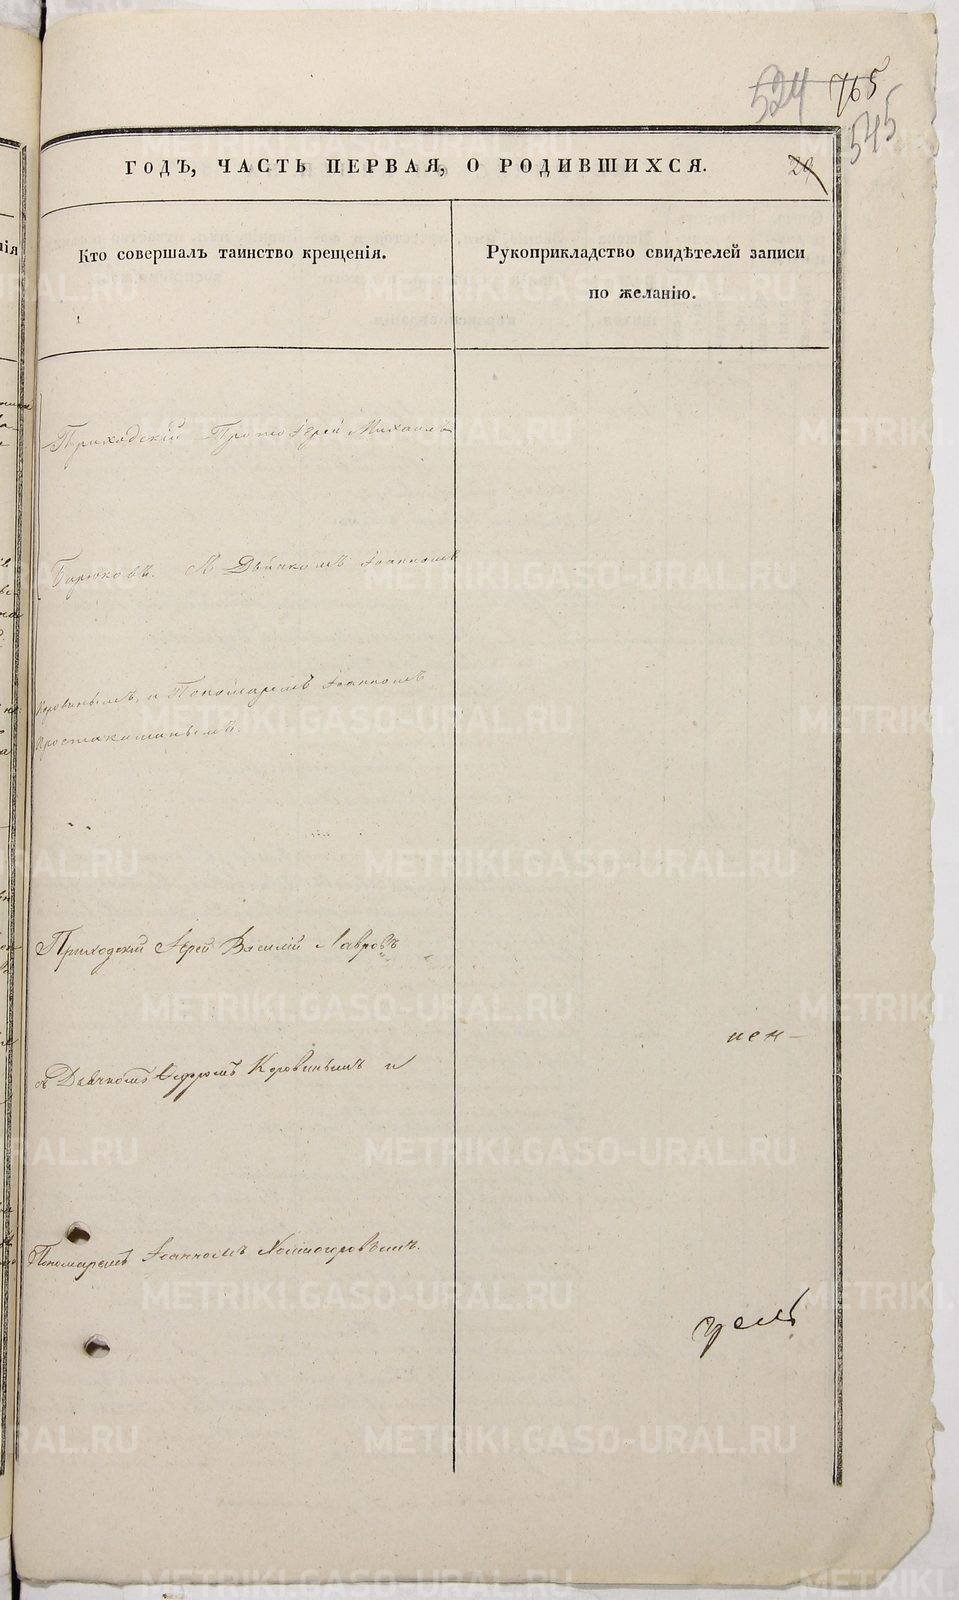 524 765
545
ГОДЪ, ЧАСТЬ ПЕРВАЯ, О РОДИВШИХСЯ. 20
Кто совершалъ таинство крещенія.
Рукоприкладство свидѣтелей записи
по желанію.
Приходскій Протоіерей Михаилъ
Бирюковъ. Съ Дьячкомъ Іоанномъ
Коровинымъ, и Пономаремъ Іоанномъ
Приходскій Іерей Василій Лавровъ
съ Дьячкомъ Ѳедоромъ Коровинымъ и
Пономаремъ Іоанномъ
METRIKI.GASO-URAL.RU